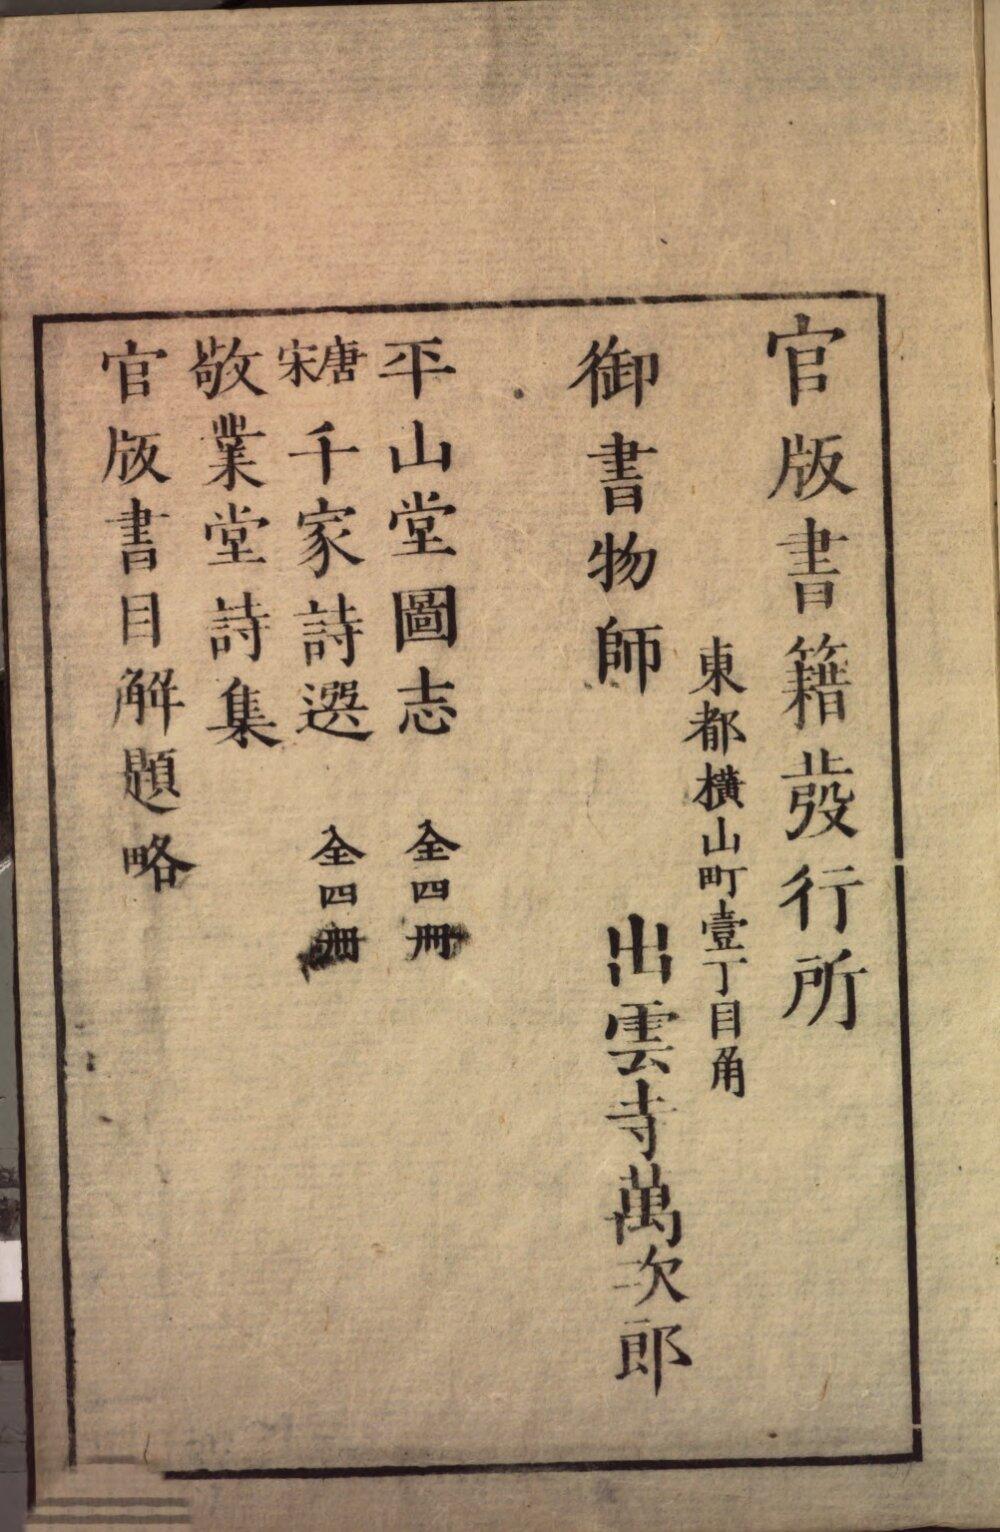 官版書籍發行所
東都橫山町壹丁目角
御書物師　出雲寺萬次郎
平山堂圖志　全四冊
唐宋千家詩選　全四冊
敬業堂詩集
官版書目解題略